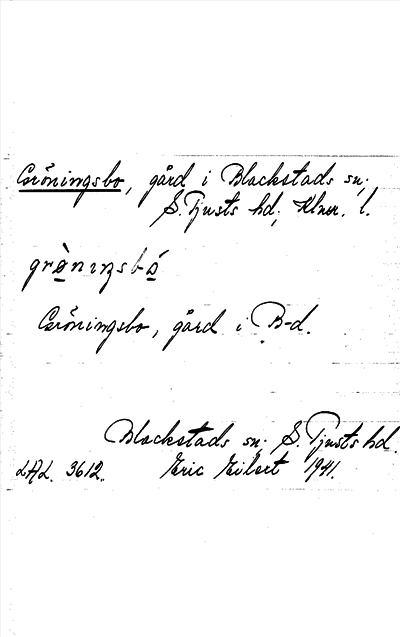 Gröningsbo, gård i Blackstads sn;
S. Tjusts hd; Klmr. l.
grø̀niŋsbó
Gröningsbo, gård i B-d.
Blackstads sn; S. Tjusts hd.
LAL. 3612. Eric Eilert 1941.